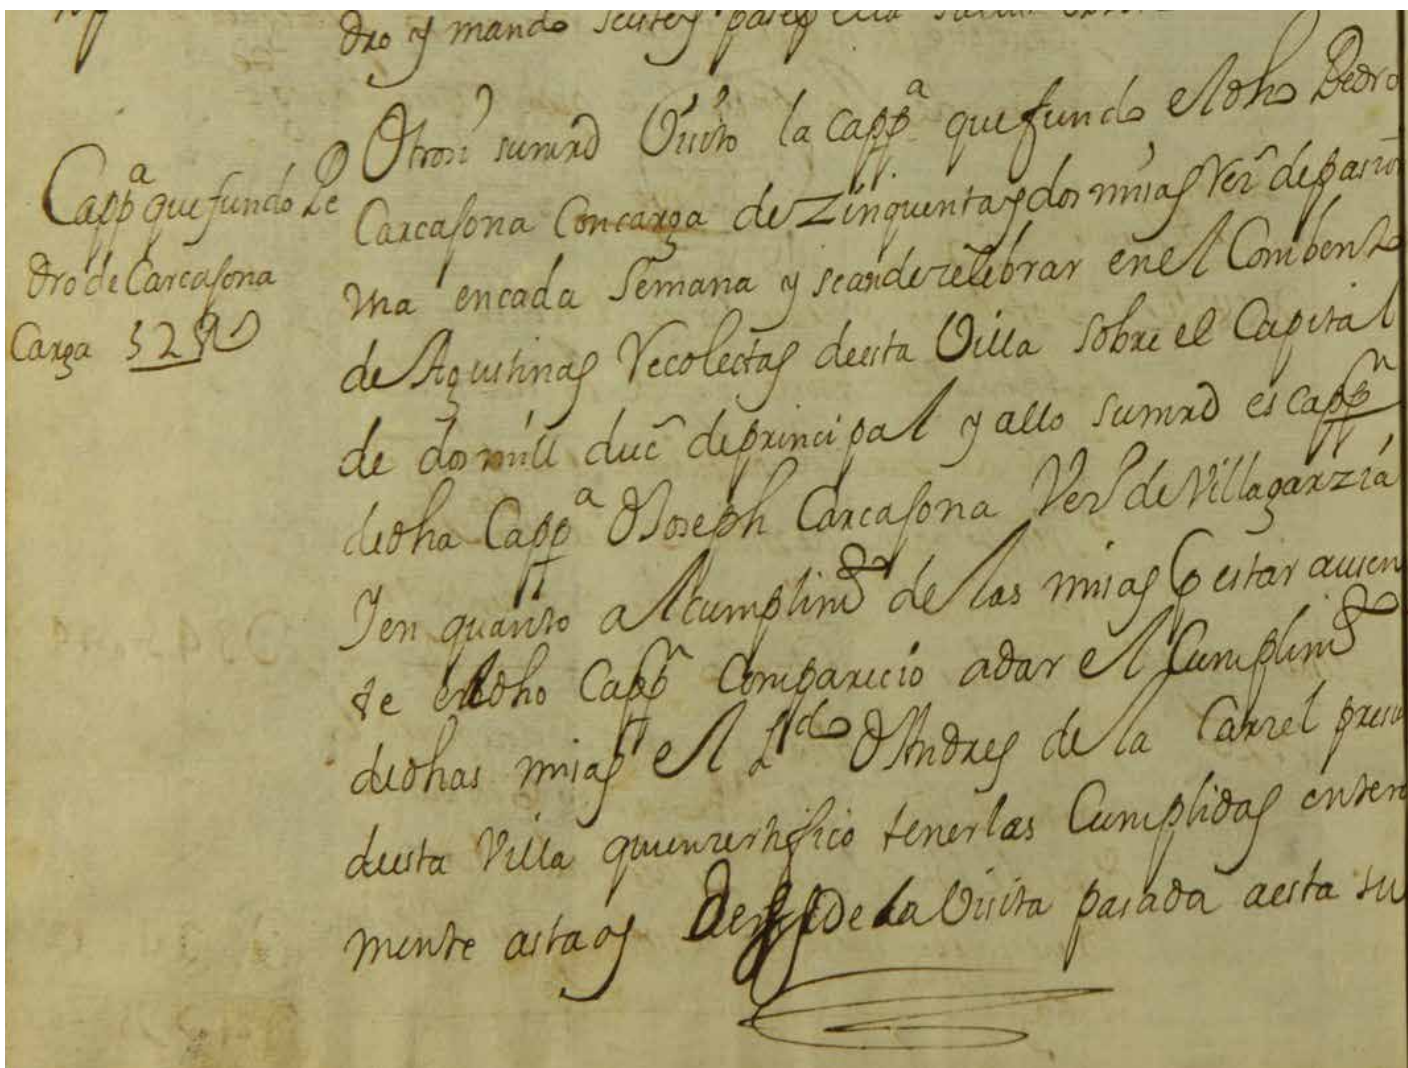 dro y mando
Capp.ª que fundo Pe
dro de Carcasona
Carga 52 R
Otrosi sumrd Visito la Capp.ª que fundo el dho Pedro
Carcasona Con carga de Zinquenta y dos misas Ver.s de pasion
Una en cada Semana y se an de zelebrar en el Combento
de Agustinas Recoletas de esta Villa Sobre el Capital
de dos mill duc.s de principal y allo sumrd es capp.n
de dha Capp.ª D Joseph Carcasona Ver.º de Villagarzia
Y en quanto al cumplim.to de las misas P estar ausen
te el dho Capp.n Comparecio a dar el Cumplim.to
de dhas misas el L.do D Andres de la Carzel presu
de esta Villa quien zertifico tenerlas Cumplidas entera
mente asta oy Desde la Visita pasada a esta su